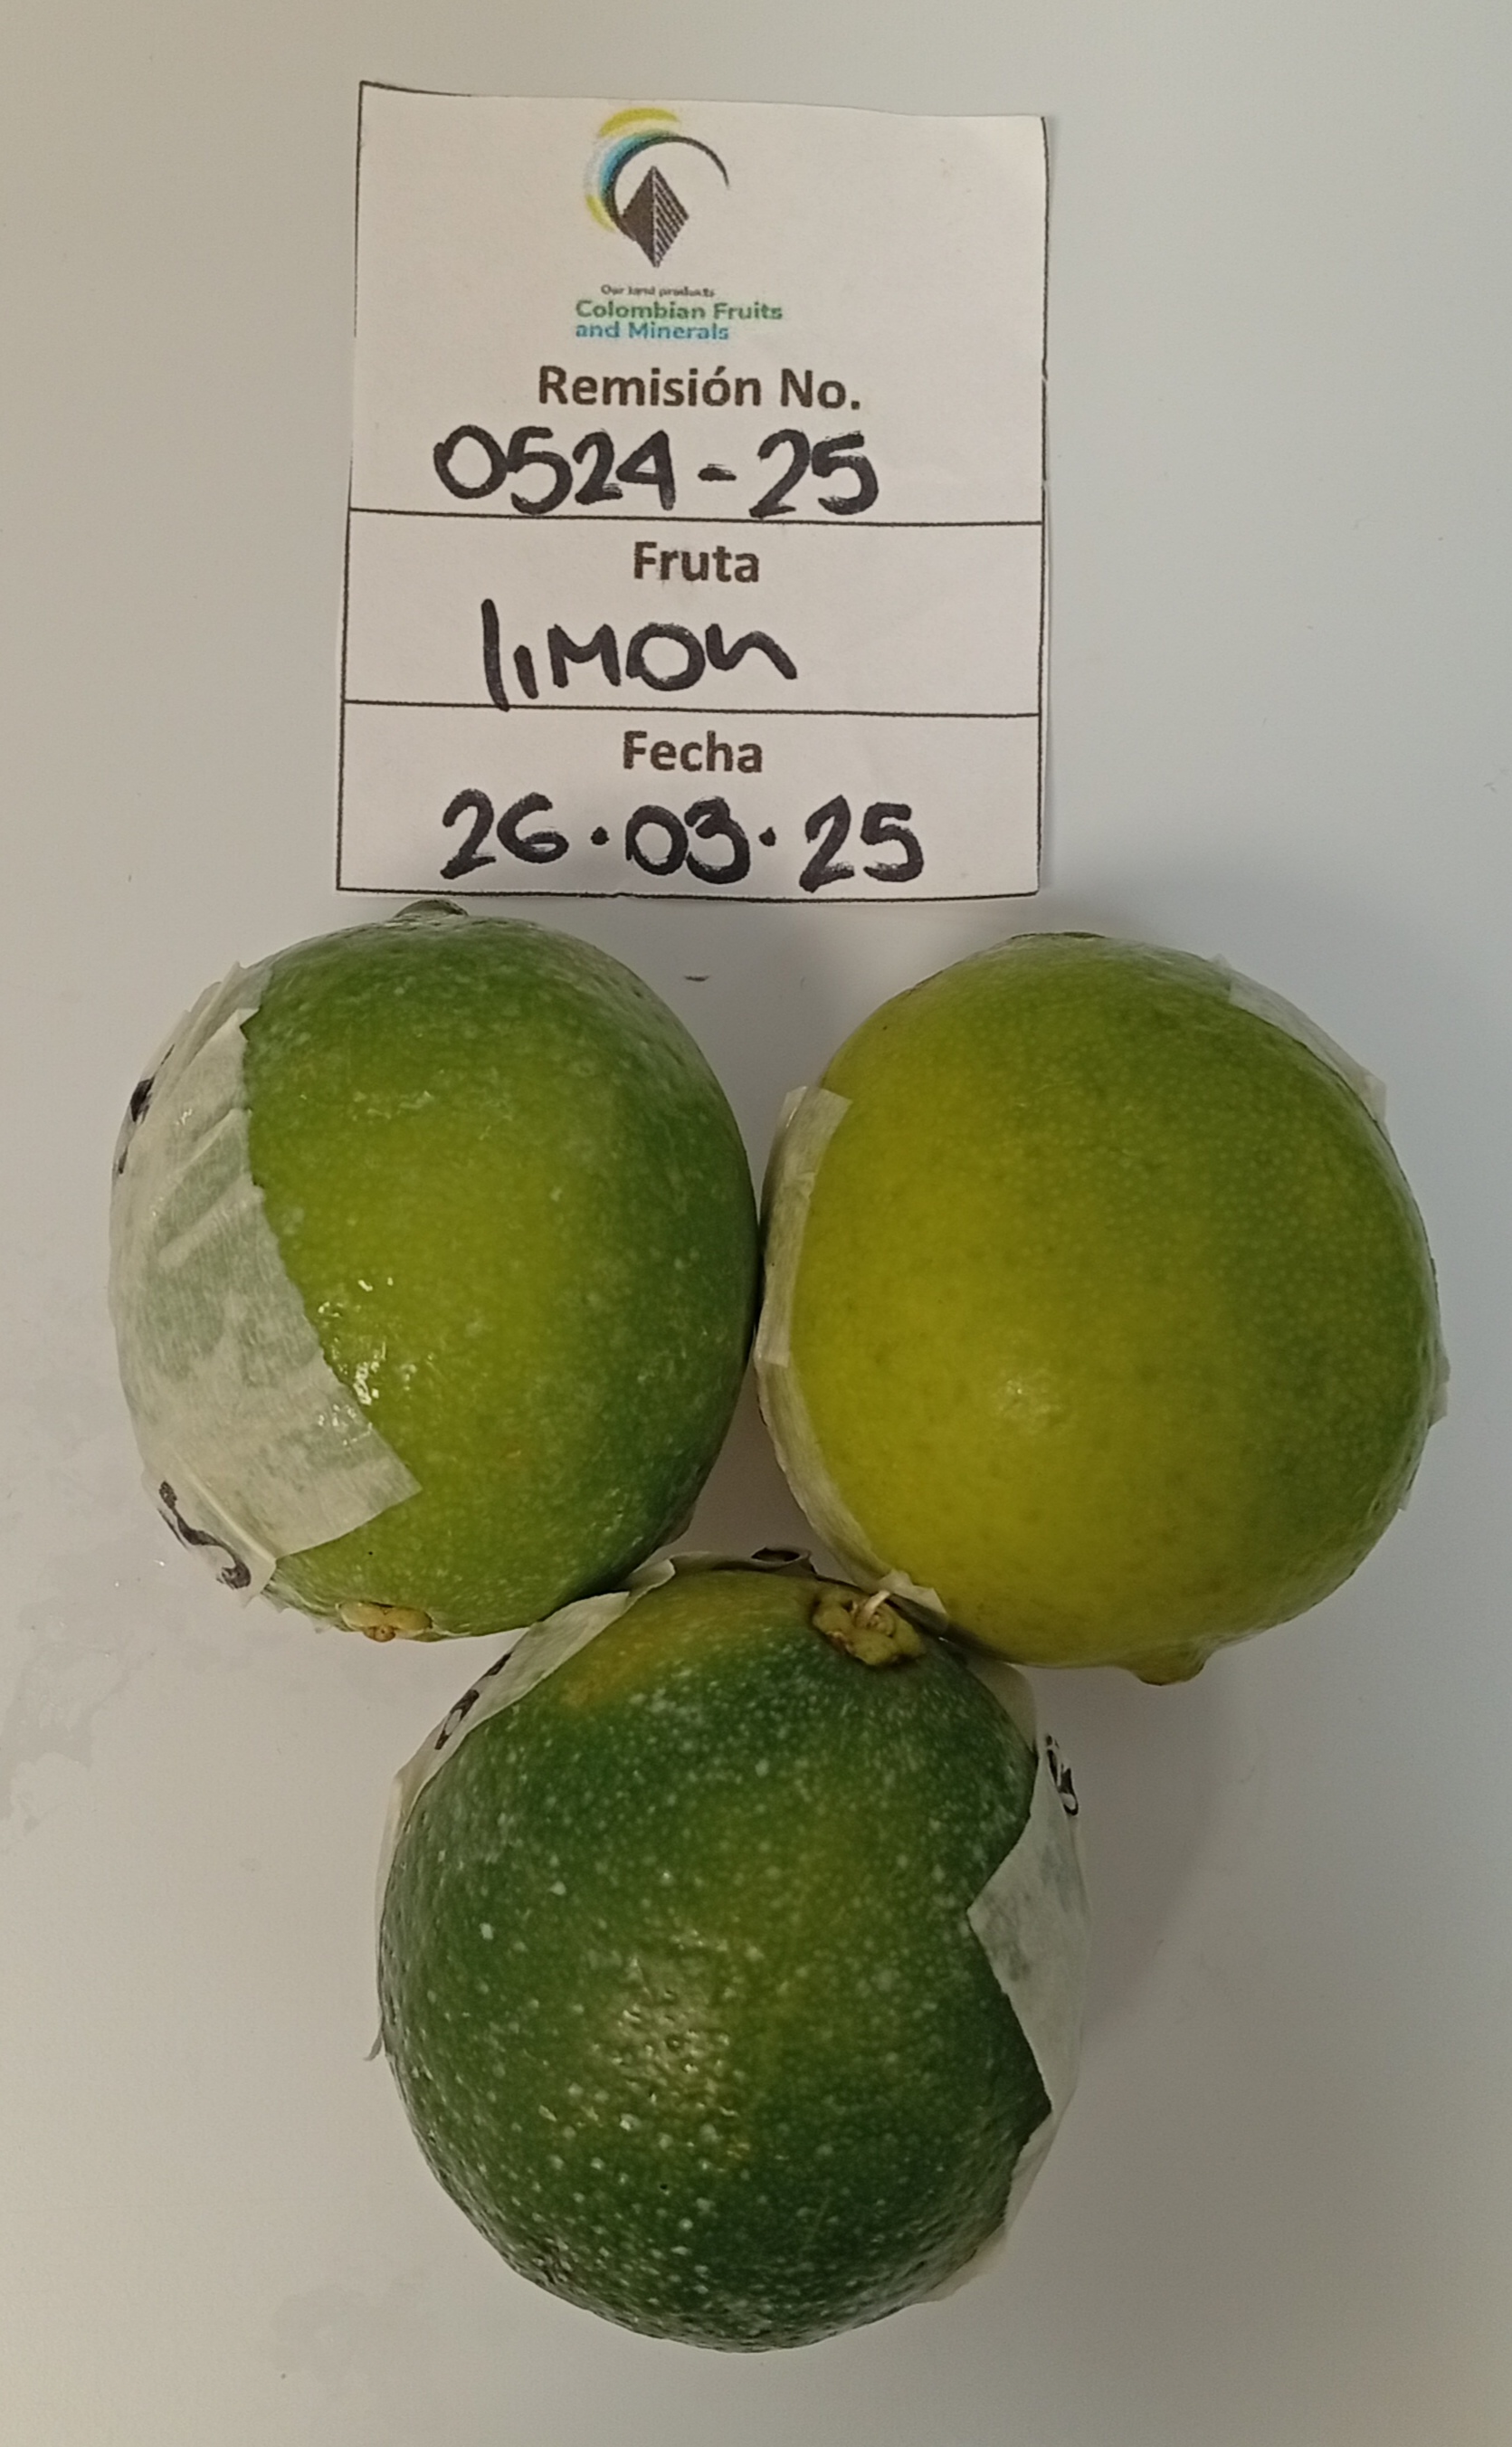 Our land products
Colombian Fruits
and Minerals
Remisión No.
0524-25
Fruta
limon
Fecha
26.03.25